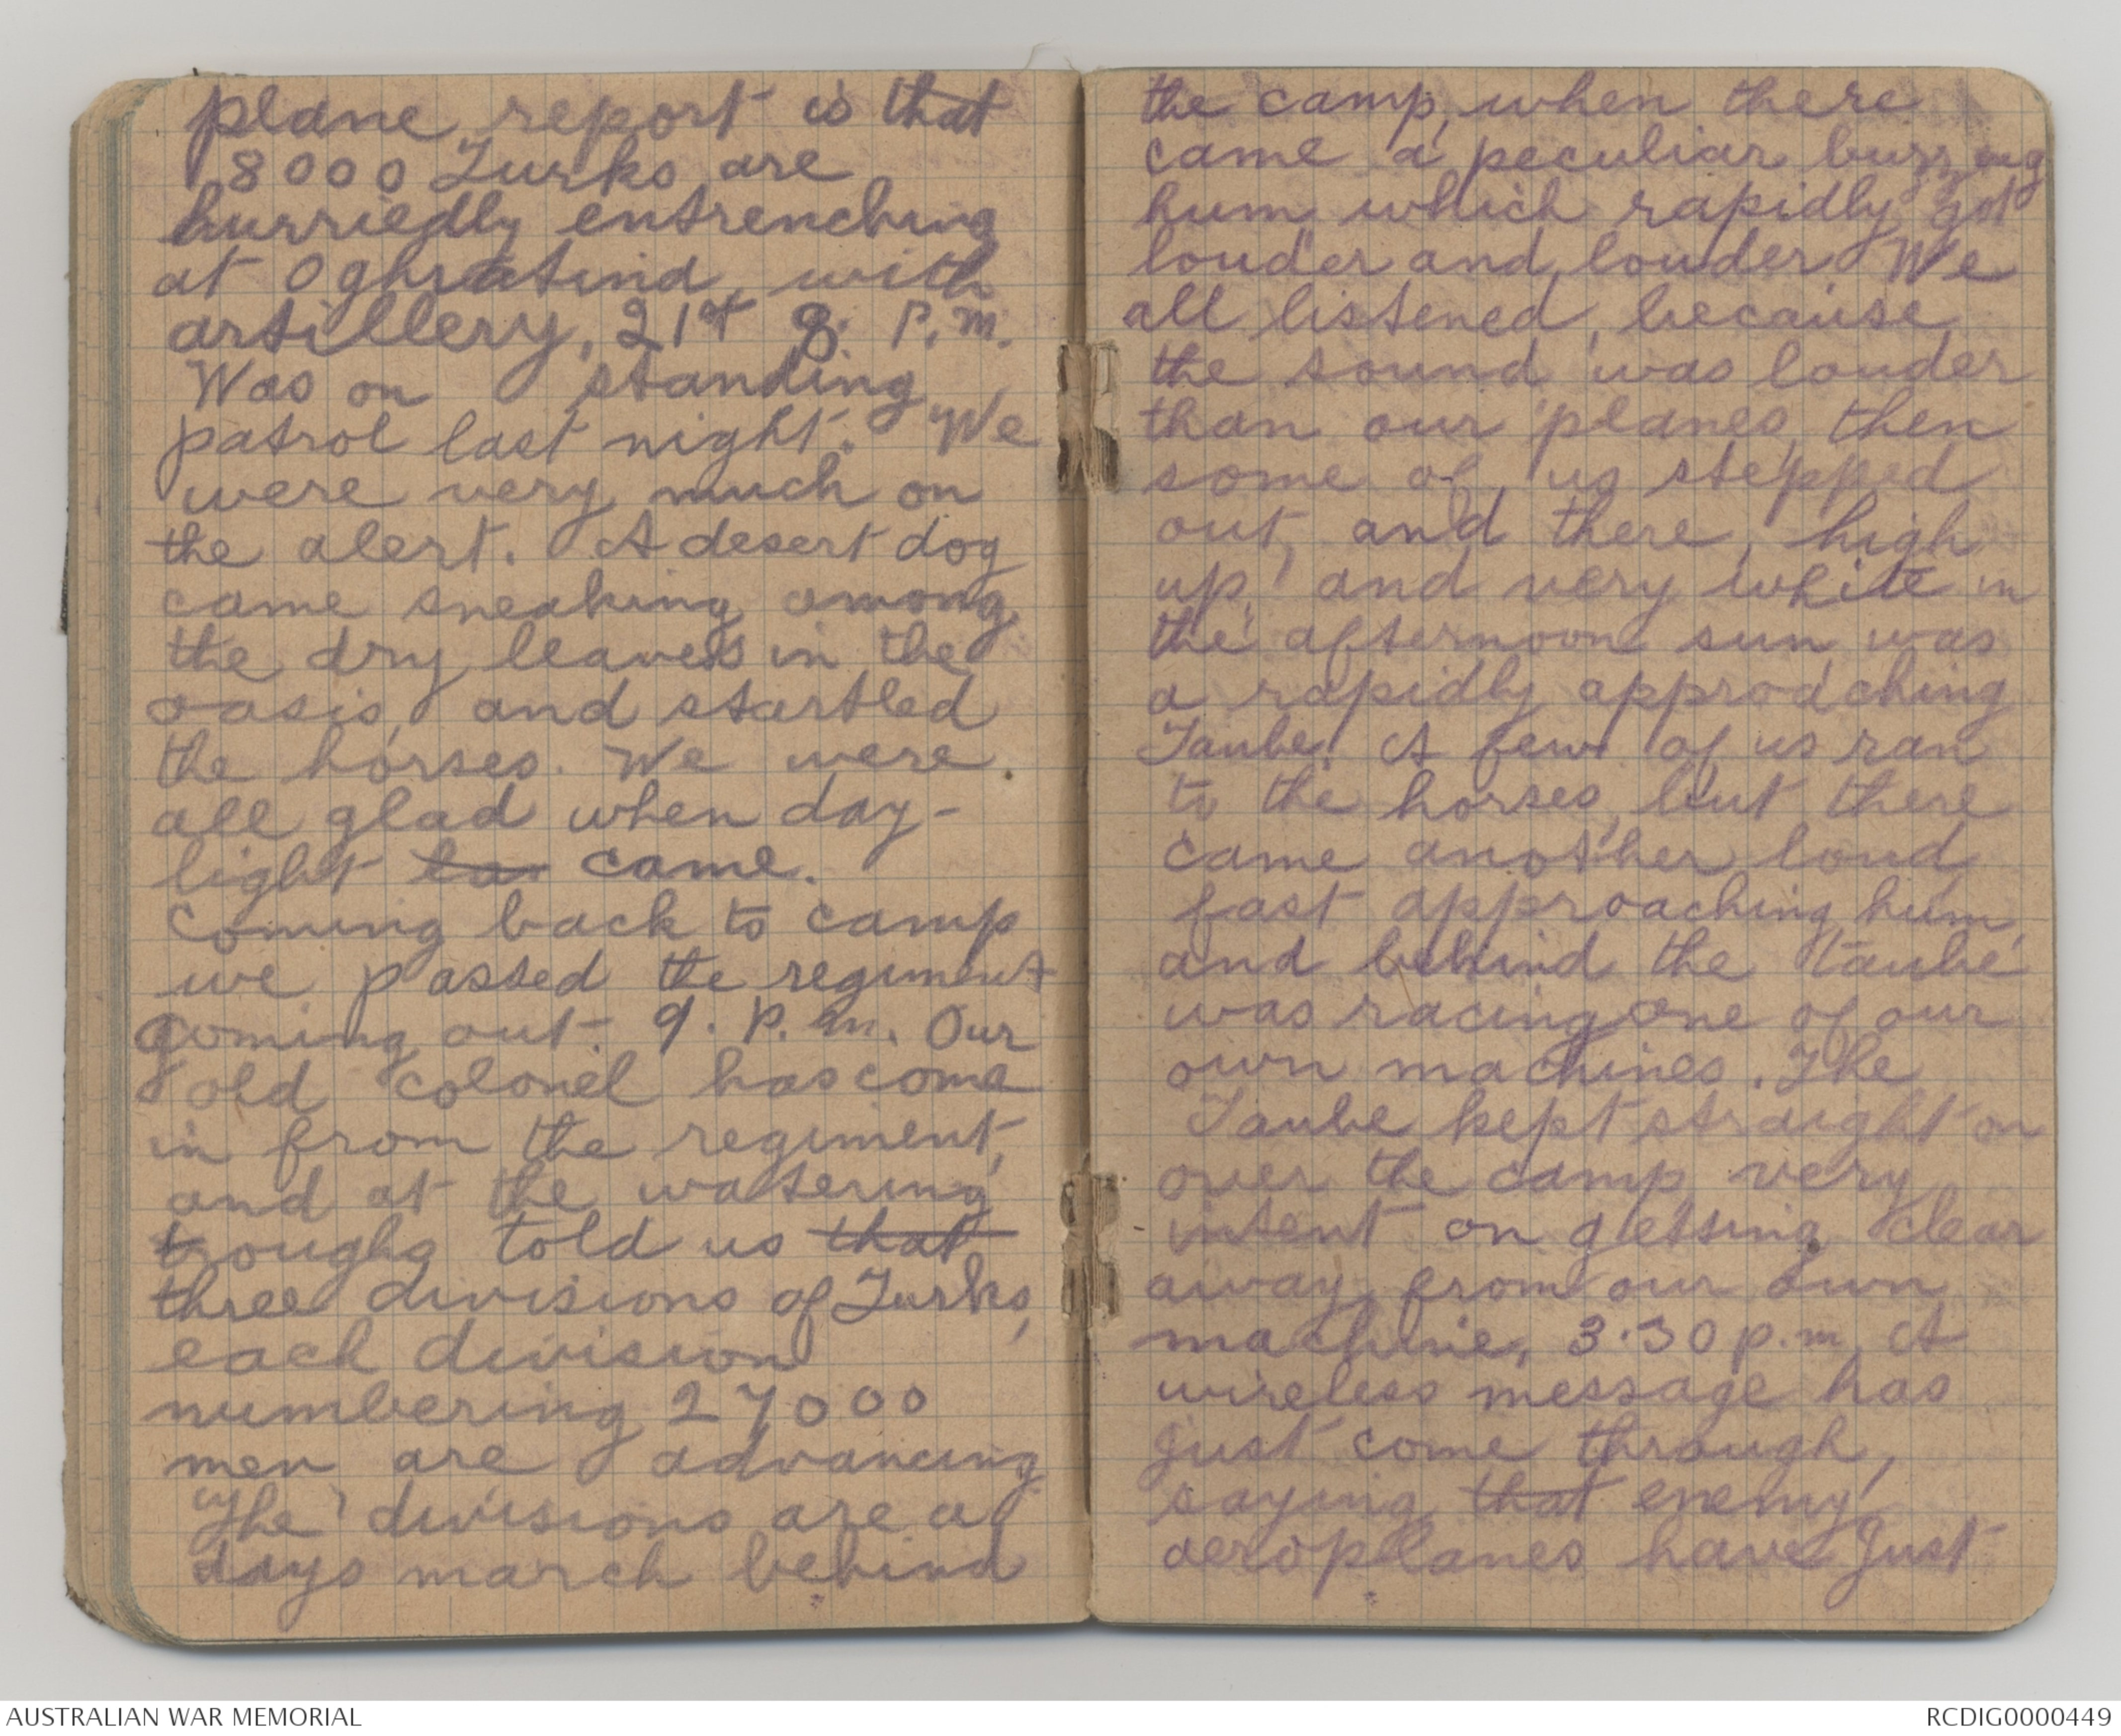 plane report is that
8000 Turks are
hurriedly entrenching
at Oghratina, with
artillery, 21st 8. P.m.
Was on standing
patrol last night. We
were very much on
the alert. A desert dog
came sneaking among
the dry leaves in the
oasis, and startled
the horses. We were
all glad when day-
light came.
Coming back to camp
we passed the regiment
going out. 9. p.m. Our
old colonel has come
in from the regiment,
and at the watering
troughs told us that
three divisions of Turks,
each division
numbering 27000
men are advancing
The divisions are a
days march behind
the camp, when there
came a peculiar buzzing
hum which rapidly got
louder and louder We
all listened, because
the sound was louder
than our planes, then
some of us stepped
out, and there, high
up, and very white in
the afternoon sun, was
a rapidly approaching
Taube. A few of us ran
to the horses, but there
came another loud,
fast approaching hum,
and behind the taube
was racing one of our
own machines. The
Taube kept straight on
over the camp, very
intent on getting clear
away from our own
machine. 3.30 p.m. A
wireless message has
just come through,
saying that enemy
aeroplanes have just
AUSTRALIAN WAR MEMORIAL
RCDIG0000449